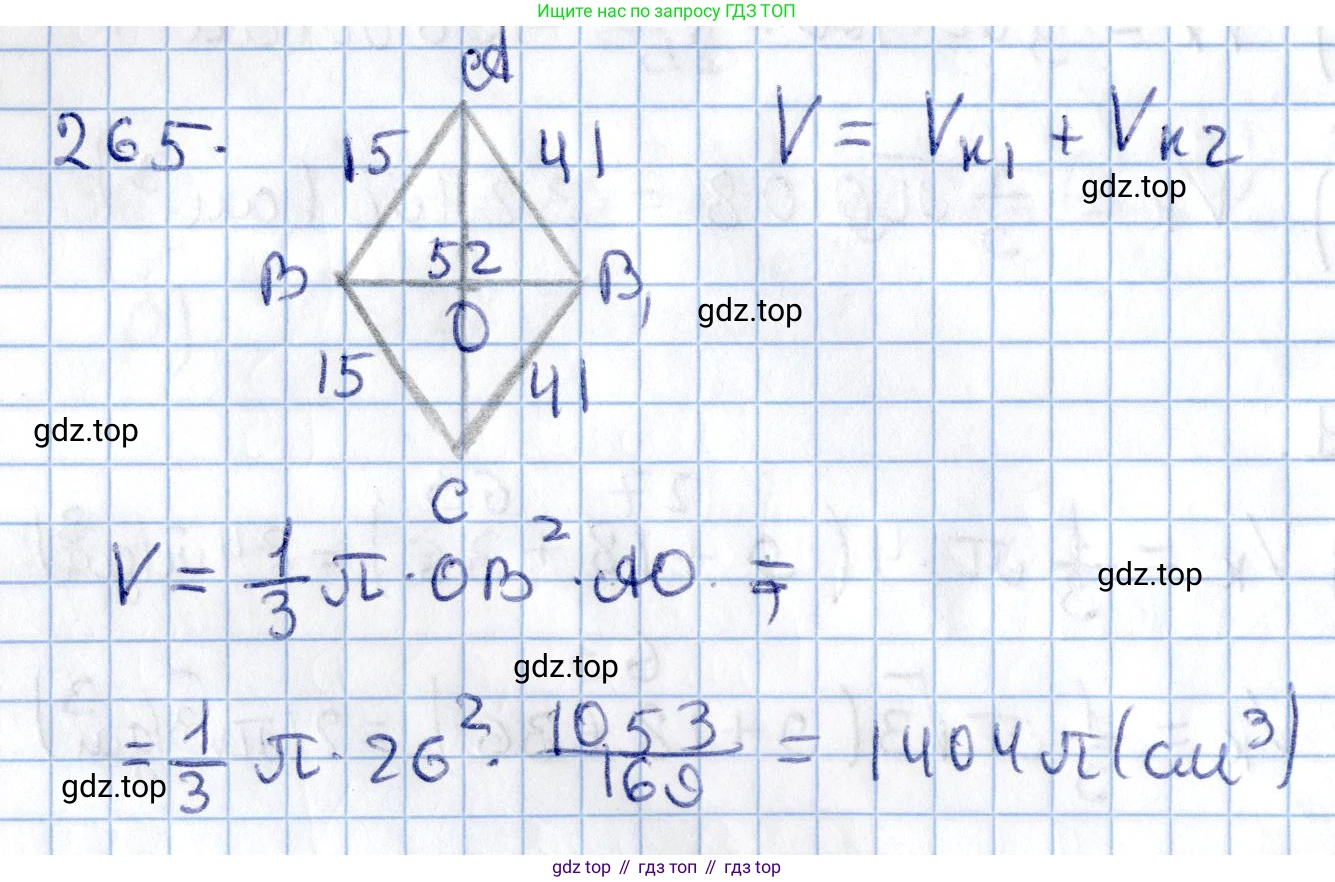 Ищите нас по запросу ГДЗ ТОП
265.
A
15
41
V = Vк₁ + Vк2
gdz.top
52
B
B₁
O
gdz.top
15
41
gdz.top
C
V = 1/3 π · OB² · AO =
gdz.top
gdz.top
= 1/3 π · 26² · 1053/169 = 1404 π (см³)
gdz.top
gdz top // гдз топ // gdz top